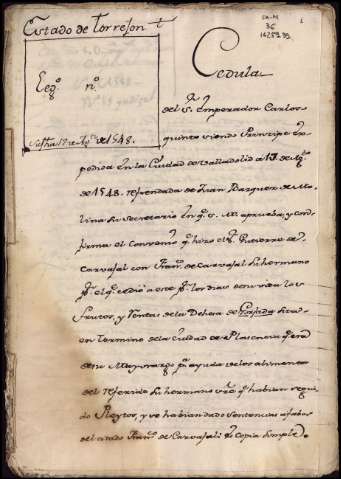 Estado de Torrejon
Cedula
Leg.º n.º
Su fha 17 de Ag.to de 1548.
del S.r Emperador Carlos
quinto siendo Principe Ex
pedida en la Ciudad de Valladolid a 17 de Ag.to
de 1548. refrendada de Juan Bazquez de Mo
lina Su Secretario en q.e S. M. aprueba, y con
firma el Convenio q.e hizo el S.r Gutierre de
Carvajal con Fran.co de Carvajal Su hermano
p.r el q.e cedio a este p.r los dias de su vida los
Frutos, y Rentas de la Dehesa de sita
en termino de la Ciudad de Plasencia q.e era
de su Mayorazgo p.a ayuda de los alimentos
del referido Su hermano sobre q.e habian segui
do Pleytos, y se habian dado sentencias a fabor
del citado Fran.co de Carvajal: es Copia Simple